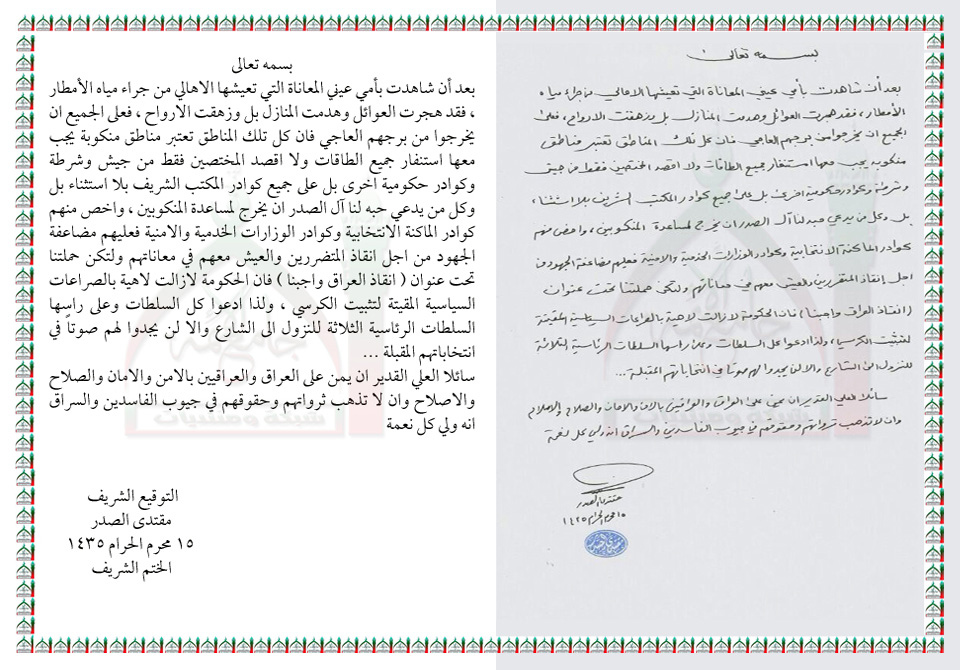 بسمه تعالى
بعد أن شاهدت بأمي عيني المعاناة التي تعيشها الاهالي من جراء مياه
الأمطار ، فقد هجرت العوائل وهدمت المنازل بل وزهقت الارواح ، فعلى
الجميع ان يخرجوا من برجهم العاجي فان كل تلك المناطق تعتبر مناطق
منكوبة يجب معها استنفار جميع الطاقات ولا اقصد المختصين فقط من جيش
وشرطة وكوادر حكومية اخرى بل على جميع كوادر المكتب الشريف بلا استثناء
بل وكل من يدعي حبه لنا آل الصدر ان يخرج لمساعدة المنكوبين ، واخص منهم
كوادر الماكنة الانتخابية وكوادر الوزارات الخدمية والامنية فعليهم مضاعفة الجهود من
اجل إنقاذ المتضررين والعيش معهم في معاناتهم ولتكن حملتنا تحت عنوان
( انقاذ العراق واجبنا ) فان الحكومة لازالت لاهية بالصراعات السياسية المقيتة
لتثبيت الكرسي ، ولذا ادعوا كل السلطات وعلى راسها السلطات الرئاسية الثلاثة
للنزول الى الشارع والا لن يجدوا لهم صوتا في انتخاباتهم المقبلة ...
سائلا العلي القدير ان يمن على العراق والعراقيين بالامن والامان والصلاح والاصلاح
وان لا تذهب ثرواتهم وحقوقهم في جيوب الفاسدين والسراق انه ولي كل نعمة
مقتدى الصدر
١٥ محرم الحرام ١٤٣٥
بسمه تعالى
بعد أن شاهدت بأمي عيني المعاناة التي تعيشها الاهالي من جراء مياه الأمطار
، فقد هجرت العوائل وهدمت المنازل بل وزهقت الارواح ، فعلى الجميع ان
يخرجوا من برجهم العاجي فان كل تلك المناطق تعتبر مناطق منكوبة يجب
معها استنفار جميع الطاقات ولا اقصد المختصين فقط من جيش وشرطة
وكوادر حكومية اخرى بل على جميع كوادر المكتب الشريف بلا استثناء بل
وكل من يدعي حبه لنا آل الصدر ان يخرج لمساعدة المنكوبين ، واخص منهم
كوادر الماكنة الانتخابية وكوادر الوزارات الخدمية والامنية فعليهم مضاعفة
الجهود من اجل انقاذ المتضررين والعيش معهم في معاناتهم ولتكن حملتنا
تحت عنوان ( انقاذ العراق واجبنا ) فان الحكومة لازالت لاهية بالصراعات
السياسية المقيتة لتثبيت الكرسي ، ولذا ادعوا كل السلطات وعلى راسها
السلطات الرئاسية الثلاثة للنزول الى الشارع والا لن يجدوا لهم صوتاً في
انتخاباتهم المقبلة ...
سائلا العلي القدير ان يمن على العراق والعراقيين بالامن والامان والصلاح
والاصلاح وان لا تذهب ثرواتهم وحقوقهم في جيوب الفاسدين والسراق
انه ولي كل نعمة
التوقيع الشريف
مقتدى الصدر
١٥ محرم الحرام ١٤٣٥
الختم الشريف
شبكة ومنتديات